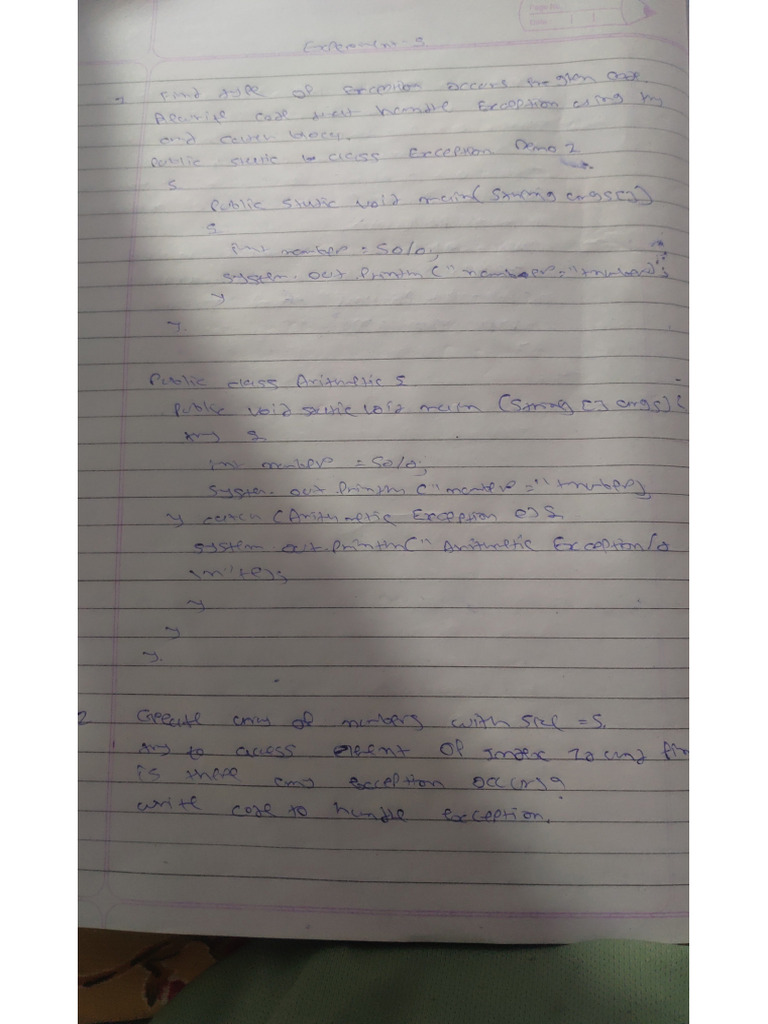 Experiment-5
1 Find type of Exception occurs in given code.
Rewrite code that handle Exception using try
and catch block.
Public static class Exception Demo 2
{
Public static void main(String args[])
{
int number = 50/0;
System.out.println("number="+number);
}
}
Public class Arithmetic {
Public void static void main (String [] args) {
try {
int number = 50/0;
System.out.println("number="+number);
} catch (Arithmetic Exception e) {
System.out.println("Arithmetic Exception/0
\n"+e);
}
}
}
2 Create array of numbers with size = 5.
try to access element of Index 10 and fin
is there any exception occurs?
write code to handle exception.